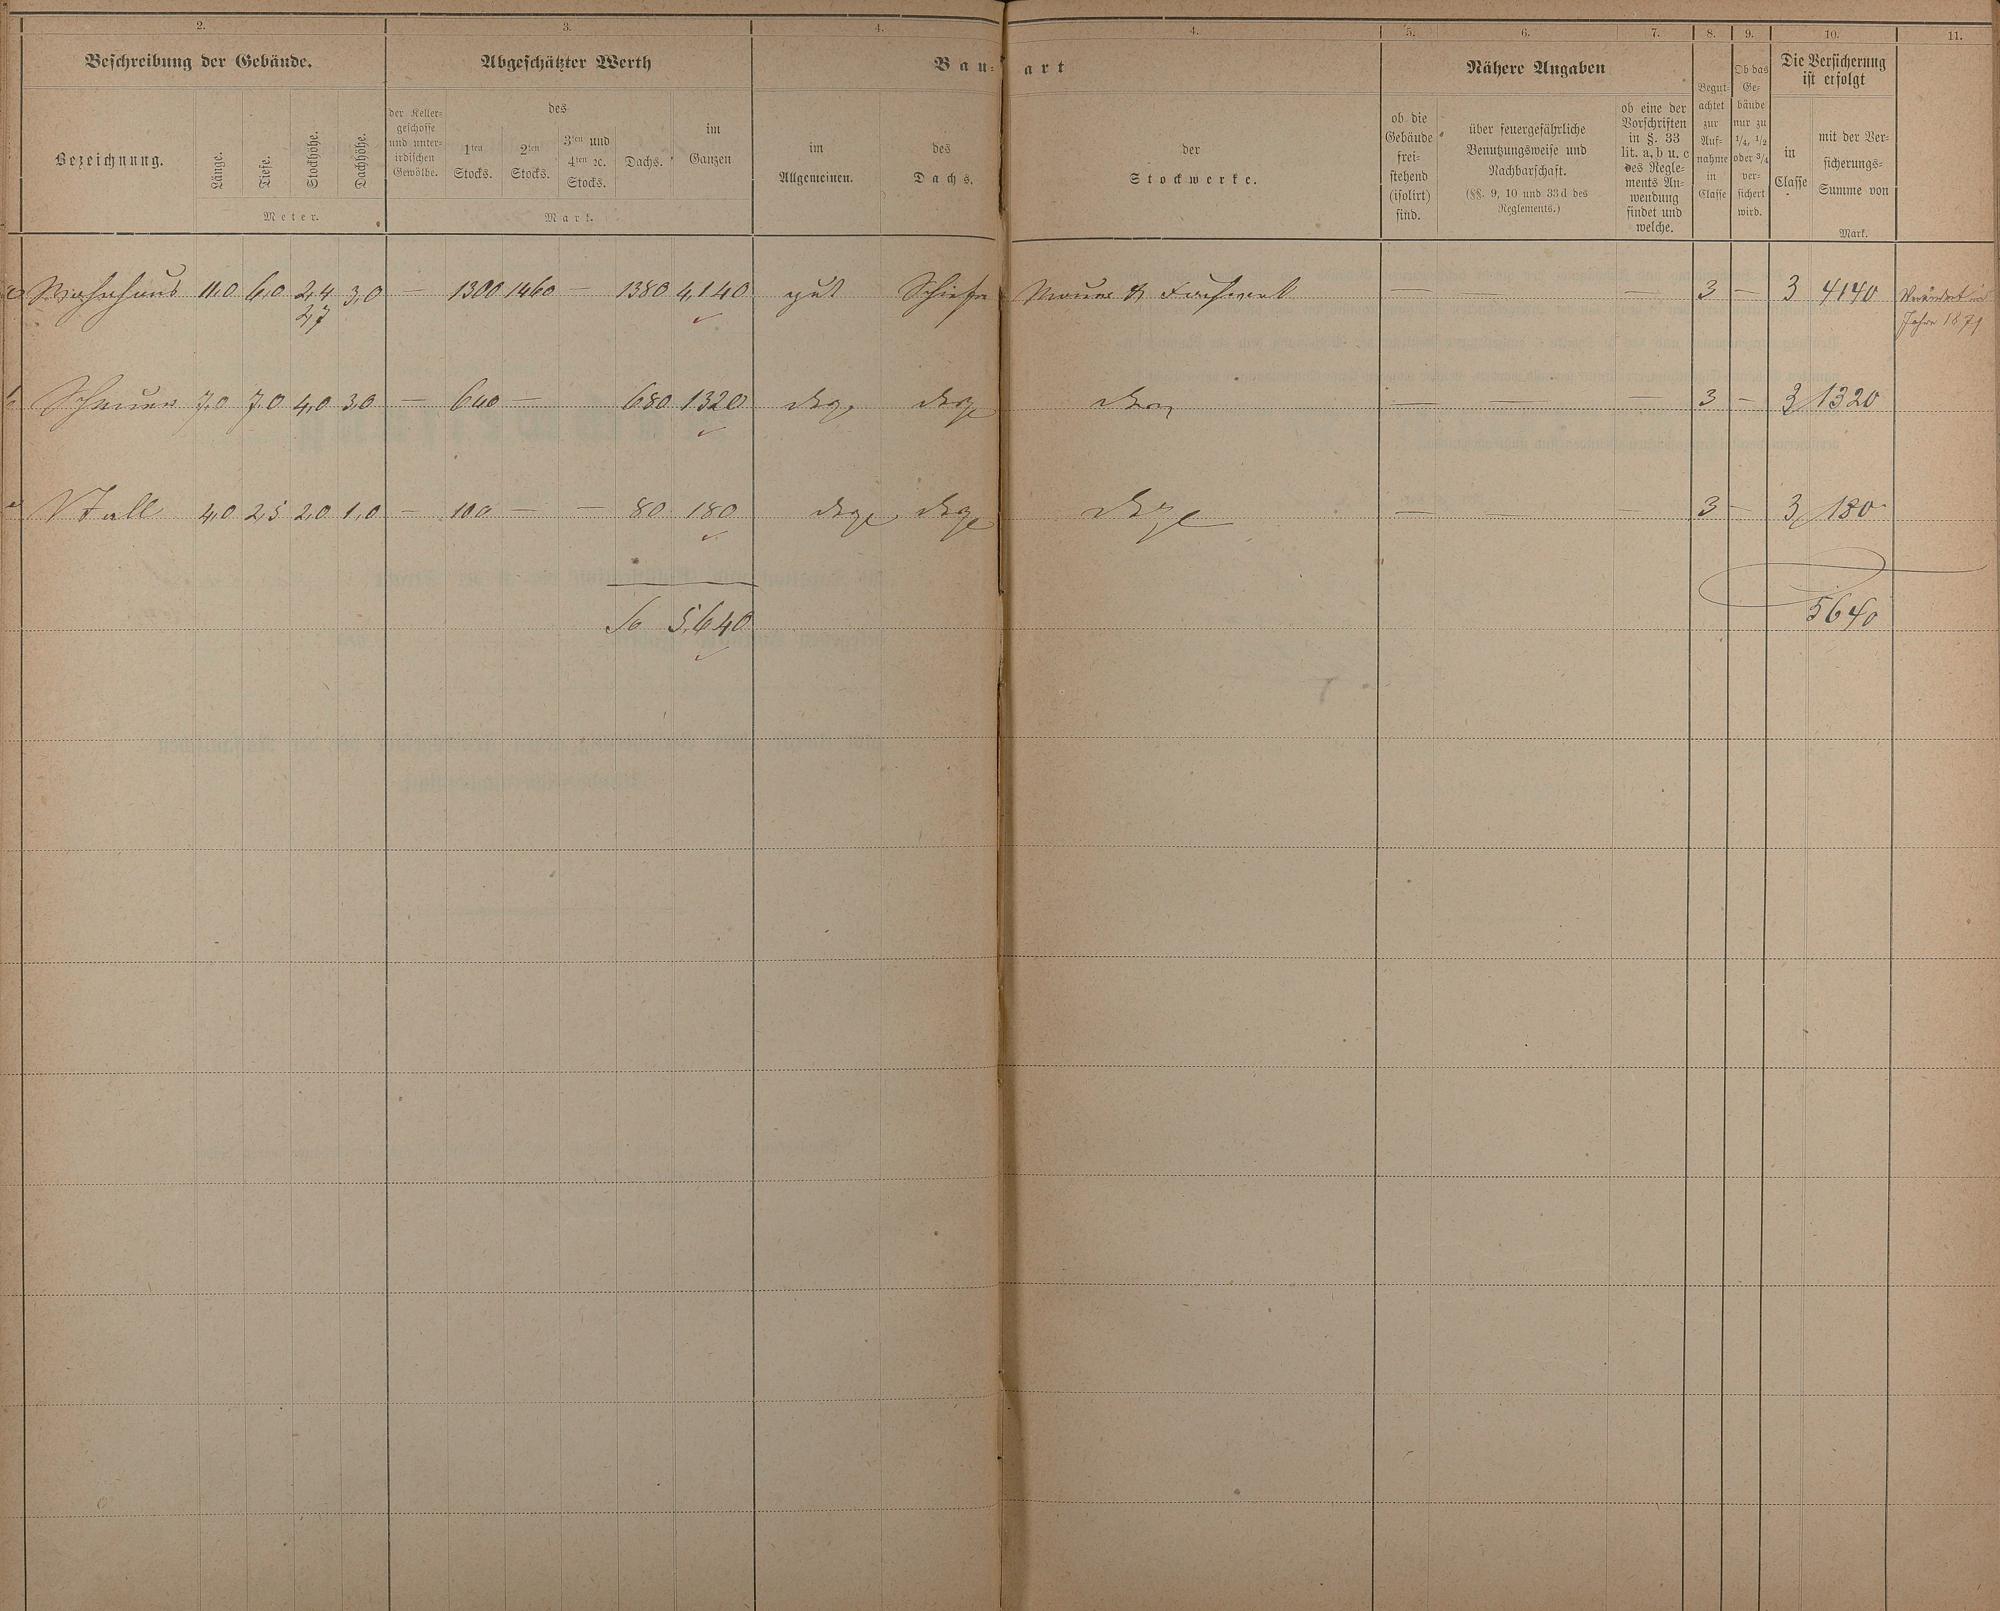 2. 3. 4. 4. 5. 6. 7. 8. 9. 10. 11.
Beschreibung der Gebäude. Abgeschätzter Werth Bau- art Nähere Angaben Die Versicherung ist erfolgt
Bezeichnung. Länge. Tiefe. Stockhöhe. Dachhöhe.
Meter.
der Keller-
geschosse
und unter-
irdischen
Gewölbe.
des
1ten
Stocks.
2ten
Stocks.
3ten und
4ten ꝛc.
Stocks.
Dachs.
im
Ganzen
Mark.
im
Allgemeinen.
des
Dachs.
der
Stockwerke.
ob die
Gebäude
frei-
stehend
(isolirt)
sind.
über feuergefährliche
Benutzungsweise und
Nachbarschaft.
(§§. 9, 10 und 33d des
Reglements.)
ob eine der
Vorschriften
in §. 33
lit. a, b u. c
des Regle-
ments An-
wendung
findet und
welche.
Begut-
achtet
zur
Auf-
nahme
in
Classe
Ob das
Ge-
bäude
nur zu
1/4, 1/2
oder 3/4
ver-
sichert
wird.
in
Classe
mit der Ver-
sicherungs-
Summe von
Mark.
Wohnhaus 11,0 6,0 2,4 3,0 — 1300 1460 — 1380 4,140 gut Schiefer Mauer & Fachwerk — — — 3 — 3 4140 Verändert im
2,7 Jahre 1879
Scheuer 7,0 7,0 4,0 3,0 — 640 — 680 1320 desgl desgl desgl — — — 3 — 3 1320
Stall 4,0 2,5 2,0 1,0 — 100 — — 80 180 desgl desgl desgl — — — 3 — 3 180
Sa 5,640 5640